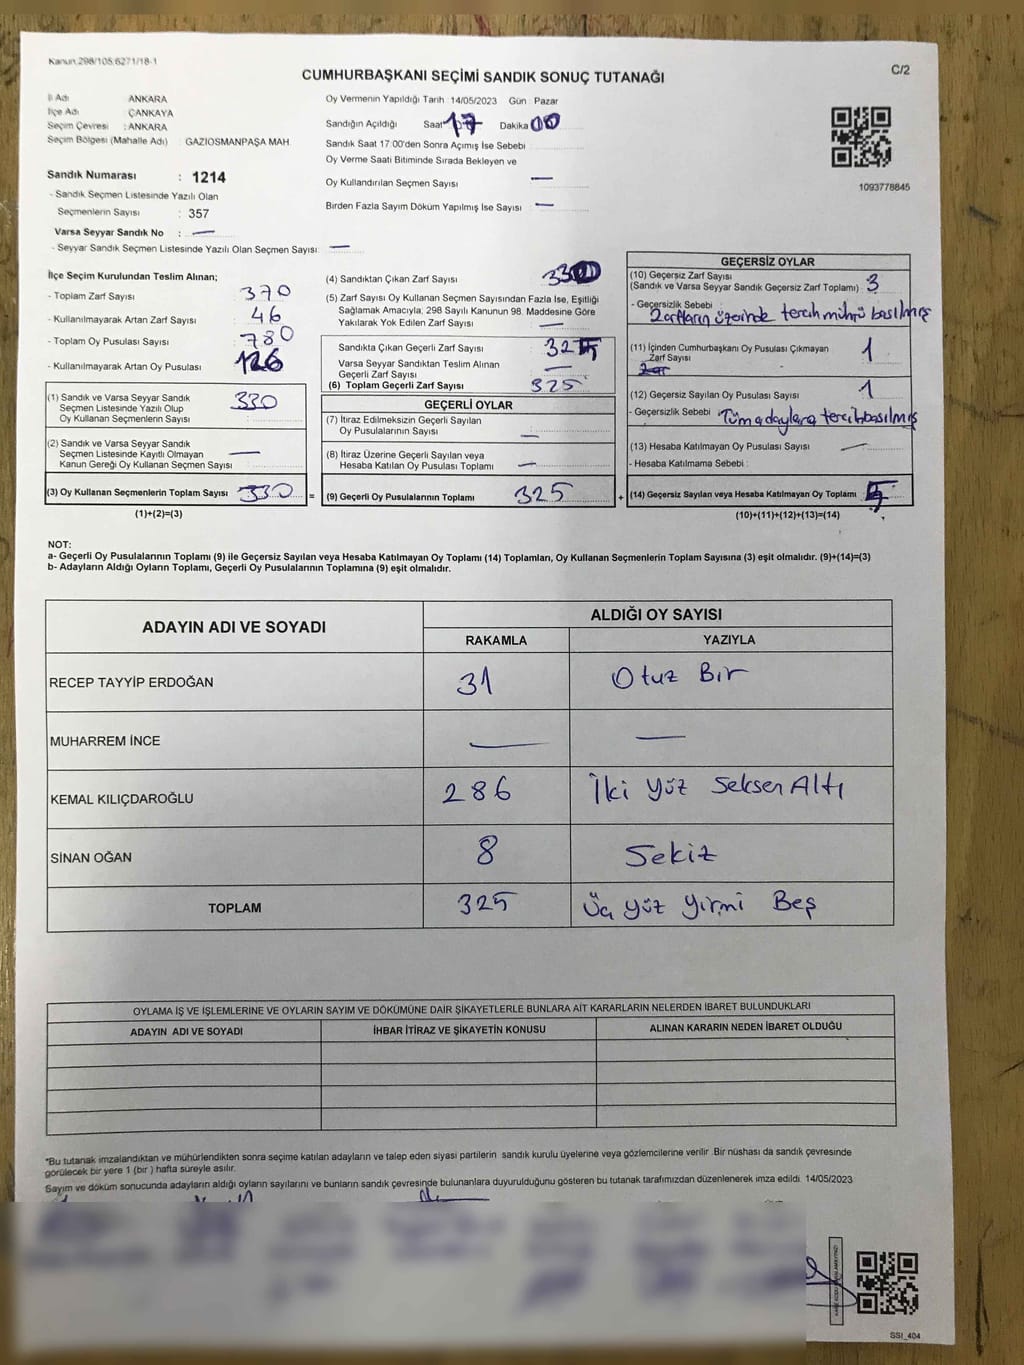 Kanun.298/105,6271/18-1
CUMHURBAŞKANI SEÇİMİ SANDIK SONUÇ TUTANAĞI
C/2
İl Adı ANKARA
İlçe Adı ÇANKAYA
Seçim Çevresi : ANKARA
Seçim Bölgesi (Mahalle Adı) : GAZİOSMANPAŞA MAH.
Sandık Numarası : 1214
- Sandık Seçmen Listesinde Yazılı Olan
Seçmenlerin Sayısı : 357
Varsa Seyyar Sandık No : —
- Seyyar Sandık Seçmen Listesinde Yazılı Olan Seçmen Sayısı: —
Oy Vermenin Yapıldığı Tarih : 14/05/2023 Gün : Pazar
Sandığın Açıldığı Saat 17 Dakika 00
Sandık Saat 17:00'den Sonra Açımış İse Sebebi
Oy Verme Saati Bitiminde Sırada Bekleyen ve
Oy Kullandırılan Seçmen Sayısı —
Birden Fazla Sayım Döküm Yapılmış İse Sayısı : —
1093778845
İlçe Seçim Kurulundan Teslim Alınan;
- Toplam Zarf Sayısı 370
- Kullanılmayarak Artan Zarf Sayısı : 46
- Toplam Oy Pusulası Sayısı : 780
- Kullanılmayarak Artan Oy Pusulası : 126
(1) Sandık ve Varsa Seyyar Sandık
Seçmen Listesinde Yazılı Olup
Oy Kullanan Seçmenlerin Sayısı : 330
(2) Sandık ve Varsa Seyyar Sandık
Seçmen Listesinde Kayıtlı Olmayan
Kanun Gereği Oy Kullanan Seçmen Sayısı : —
(3) Oy Kullanan Seçmenlerin Toplam Sayısı : 330 =
(1)+(2)=(3)
(4) Sandıktan Çıkan Zarf Sayısı 330
(5) Zarf Sayısı Oy Kullanan Seçmen Sayısından Fazla İse, Eşitliği
Sağlamak Amacıyla, 298 Sayılı Kanunun 98. Maddesine Göre
Yakılarak Yok Edilen Zarf Sayısı : —
Sandıkta Çıkan Geçerli Zarf Sayısı : 325
Varsa Seyyar Sandıktan Teslim Alınan
Geçerli Zarf Sayısı —
(6) Toplam Geçerli Zarf Sayısı : 325
GEÇERLİ OYLAR
(7) İtiraz Edilmeksizin Geçerli Sayılan
Oy Pusulalarının Sayısı : —
(8) İtiraz Üzerine Geçerli Sayılan veya
Hesaba Katılan Oy Pusulası Toplamı : —
(9) Geçerli Oy Pusulalarının Toplamı : 325 +
GEÇERSİZ OYLAR
(10) Geçersiz Zarf Sayısı
(Sandık ve Varsa Seyyar Sandık Geçersiz Zarf Toplamı) : 3
- Geçersizlik Sebebi
Zarfların üzerinde tercih mührü basılmış
(11) İçinden Cumhurbaşkanı Oy Pusulası Çıkmayan
Zarf Sayısı 1
(12) Geçersiz Sayılan Oy Pusulası Sayısı : 1
- Geçersizlik Sebebi : Tüm adaylara tercih basılmış
(13) Hesaba Katılmayan Oy Pusulası Sayısı —
- Hesaba Katılmama Sebebi :
(14) Geçersiz Sayılan veya Hesaba Katılmayan Oy Toplamı : 5
(10)+(11)+(12)+(13)=(14)
NOT:
a- Geçerli Oy Pusulalarının Toplamı (9) ile Geçersiz Sayılan veya Hesaba Katılmayan Oy Toplamı (14) Toplamları, Oy Kullanan Seçmenlerin Toplam Sayısına (3) eşit olmalıdır. (9)+(14)=(3)
b- Adayların Aldığı Oyların Toplamı, Geçerli Oy Pusulalarının Toplamına (9) eşit olmalıdır.
ADAYIN ADI VE SOYADI
ALDIĞI OY SAYISI
RAKAMLA YAZIYLA
RECEP TAYYİP ERDOĞAN 31 Otuz Bir
MUHARREM İNCE — —
KEMAL KILIÇDAROĞLU 286 İki Yüz Seksen Altı
SİNAN OĞAN 8 Sekiz
TOPLAM 325 Üç Yüz Yirmi Beş
OYLAMA İŞ VE İŞLEMLERİNE VE OYLARIN SAYIM VE DÖKÜMÜNE DAİR ŞİKAYETLERLE BUNLARA AİT KARARLARIN NELERDEN İBARET BULUNDUKLARI
ADAYIN ADI VE SOYADI İHBAR İTİRAZ VE ŞİKAYETİN KONUSU ALINAN KARARIN NEDEN İBARET OLDUĞU
*Bu tutanak imzalandıktan ve mühürlendikten sonra seçime katılan adayların ve talep eden siyasi partilerin sandık kurulu üyelerine veya gözlemcilerine verilir .Bir nüshası da sandık çevresinde
görülecek bir yere 1 (bir ) hafta süreyle asılır.
Sayım ve döküm sonucunda adayların aldığı oyların sayılarını ve bunların sandık çevresinde bulunanlara duyurulduğunu gösteren bu tutanak tarafımızdan düzenlenerek imza edildi. 14/05/2023
SSİ_404